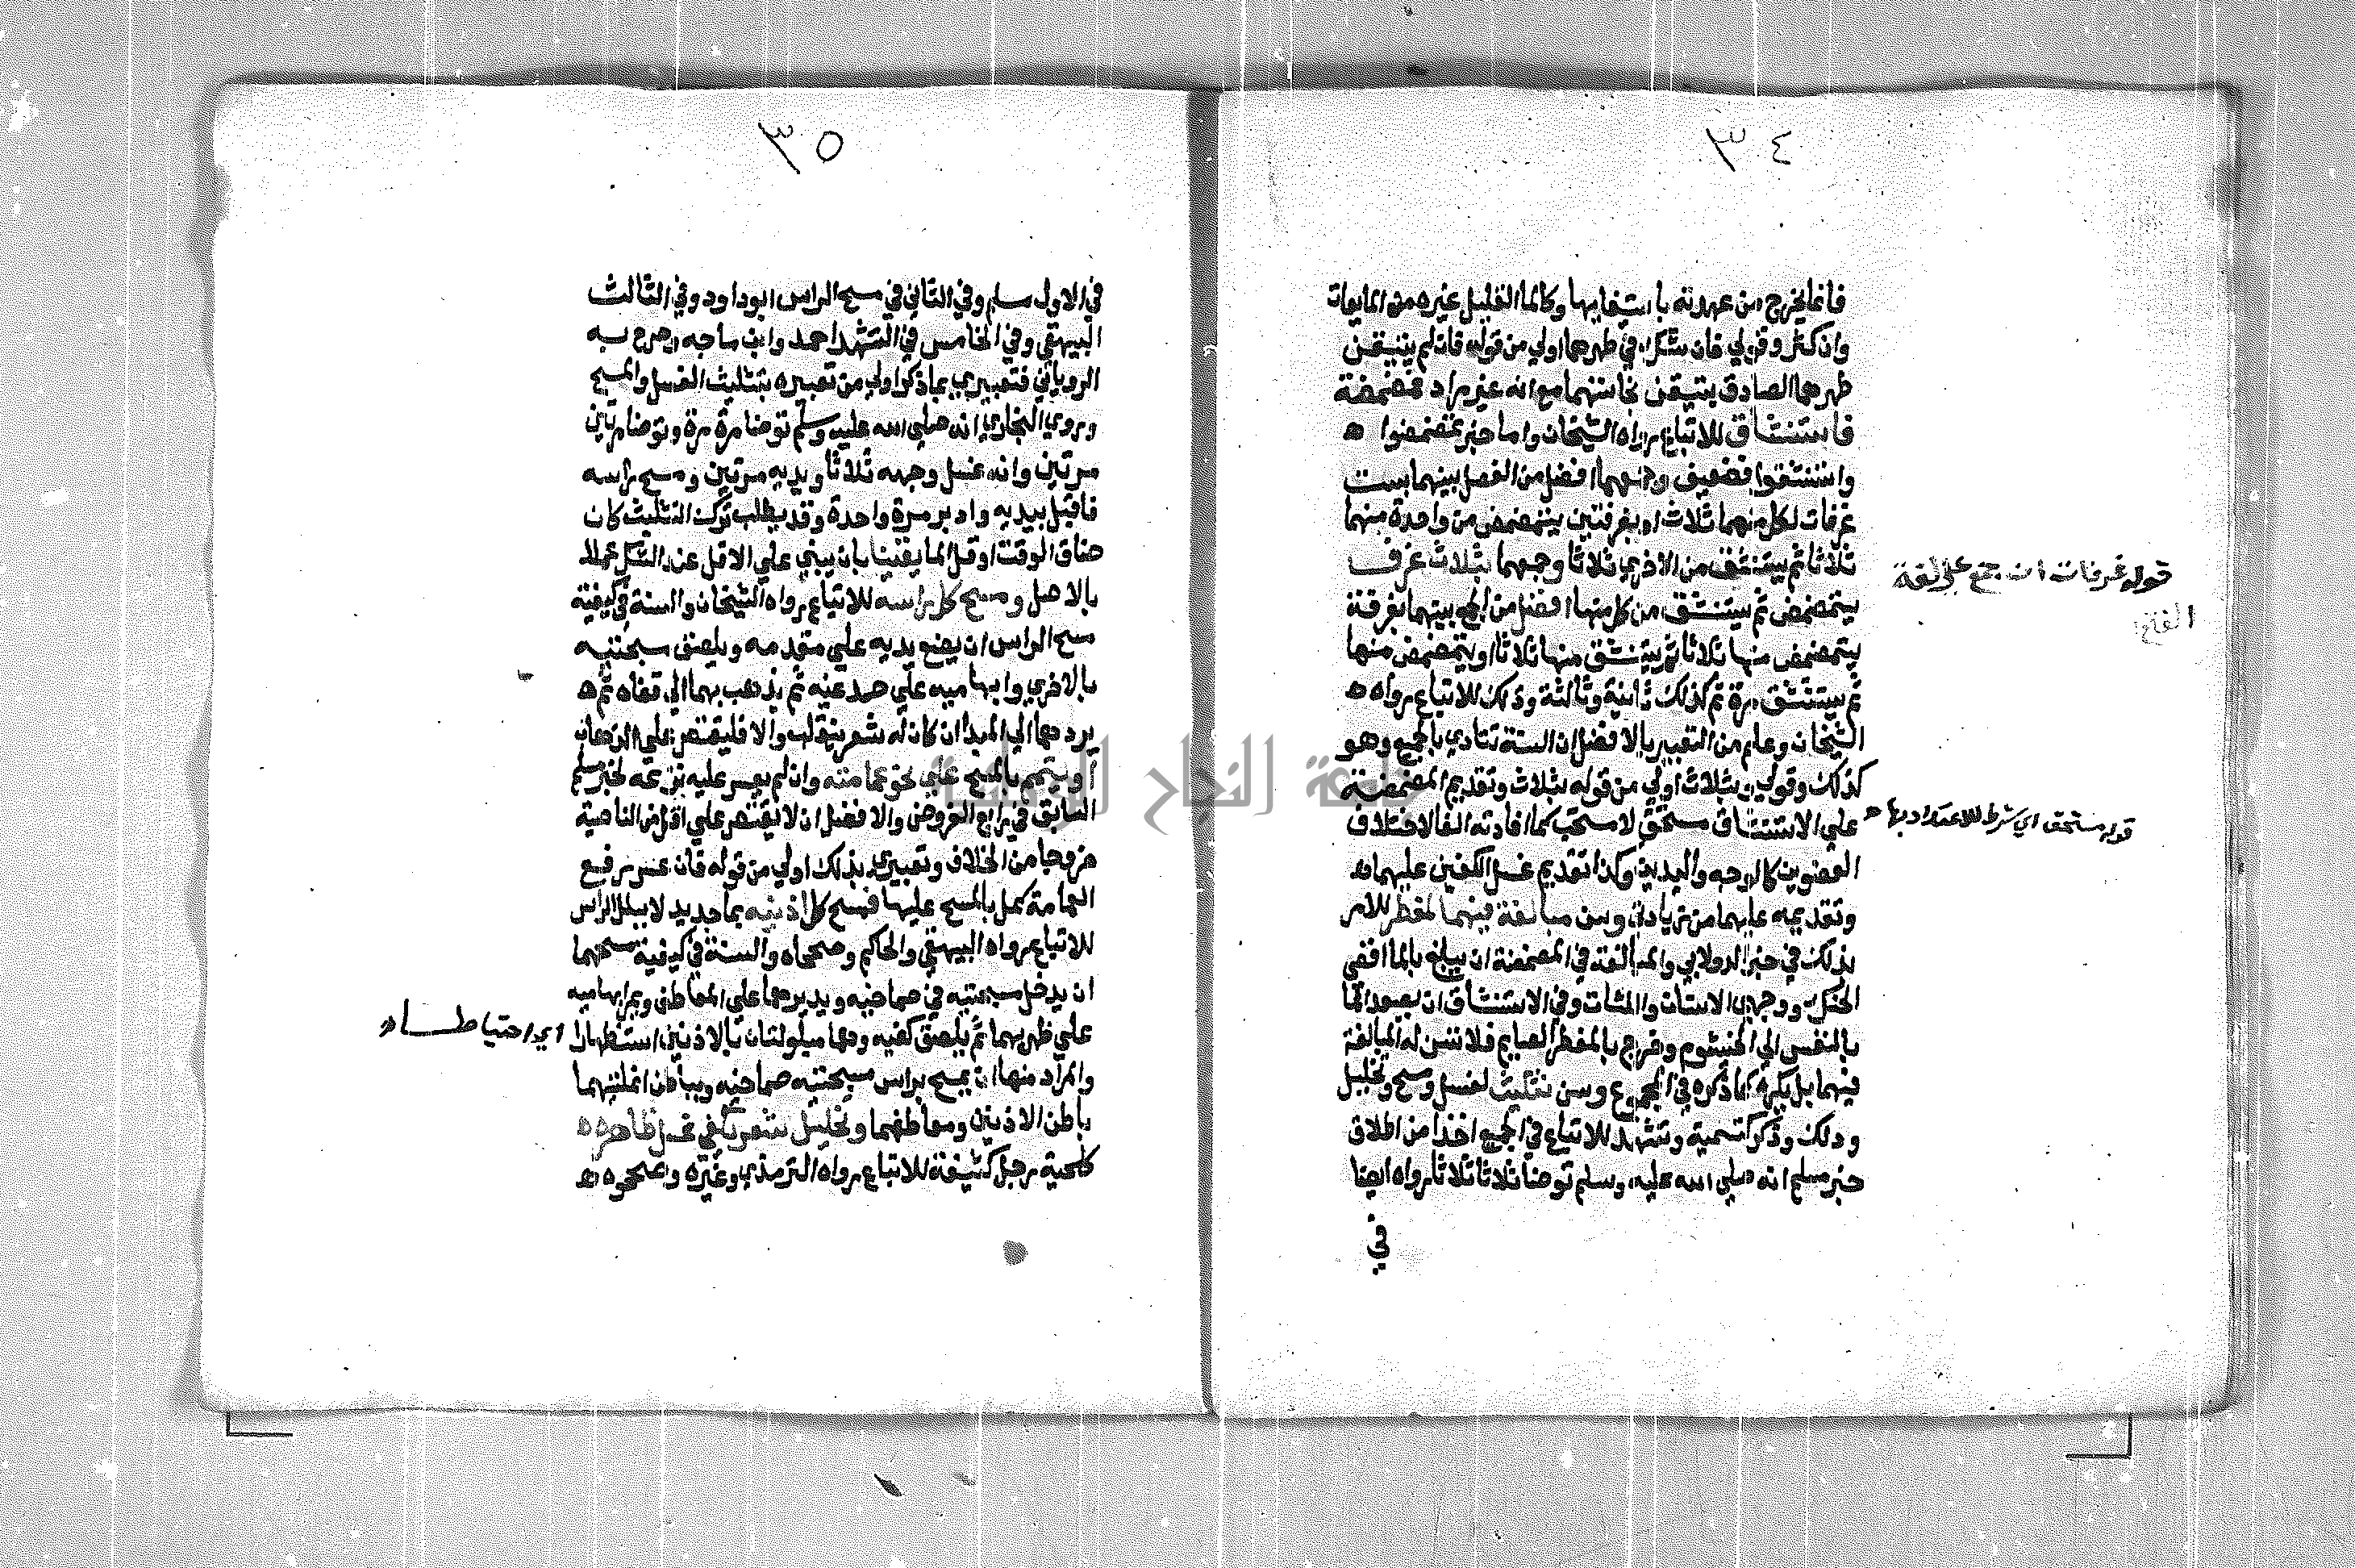 ٣٤
فانما يخرج من عهدته باستيفايها وكالما القليل غيره من المايعات
وان كثر وقولي فان شك في طهرهما اولي من قوله فان لم يتيقن
طهرهما الصادق بتيقن نجاستهما مع انه غير مراد فمضمضة
فاستنشاق للاتباع رواه الشيخان واما خبر تمضمضوا ه
واستنشقوا فضعيف وجمعهما افضل من الفصل بينهما بست
غرفات لكل منهما ثلاث او بغرفتين يتمضمض من واحدة منهما
ثلاثا ثم يستنشق من الاخري ثلاثا وجمعهما بثلاث غرف
يتمضمض ثم يستنشق من كل منها افضل من الجمع بينهما بغرفة
يتمضمض منها ثلاثا ثم يستنشق منها ثلاثا او يتمضمض منها
ثم يستنشق مرة ثم كذلك ثانية وثالثة وذلك للاتباع رواه ه
الشيخان وعلم من التعبير بالافضل ان السنة تتادي بالجميع وهو
كذلك وقولي بثلاث اولي من قوله بثلاث وتقديم المضمضة
علي الاستنشاق مستحق لا مستحب كما افادته الفا لاختلاف
العضوين كالوجه واليدين وكذا تقديم غسل الكفين عليهما
وتقديمه عليهما من زيادتي وسن مبالغة فيهما لمفطر للامر
بذلك في خبر الدولابي والمبالغة في المضمضة ان يبلغ بالما اقصي
الحنك ووجهي الاسنان واللثات وفي الاستنشاق ان يصعد الما
بالنفس الي الخيشوم وخرج بالمفطر الصايم فلا تسن له المبالغة
فيهما بل يكره كما ذكره في المجموع وسن تثليث لغسل ومسح وتخليل
ودلك وذكر كتسمية وتشهد للاتباع في الجميع اخذا من اطلاق
خبر مسلم انه صلي الله عليه وسلم توضا ثلاثا ثلاثا رواه ايضا
في
قوله غرفات ان جمع علي لغة
قوله مستحق اي شرط للاعتداد بها ه
٣٥
في الاول مسلم وفي الثاني في مسح الراس ابوداود وفي الثالث
البيهقي وفي الخامس في التشهد احمد وابن ماجه وصرح به
الروياني فتعبيري بما ذكر اولي من تعبيره بتثليث الغسل والمسح
وروي البخاري انه صلي الله عليه وسلم توضا مرة مرة وتوضا مرتين
مرتين وانه غسل وجهه ثلاثا ويديه مرتين ومسح راسه
فاقبل بيديه وادبر مرة واحدة وقد يطلب ترك التثليث كان
ضاق الوقت او قل الما يقينا بان يبني علي الاقل عند الشك عملا
بالاصل ومسح كل راسه للاتباع رواه الشيخان والسنة في كيفية
مسح الراس ان يضع يديه علي مقدمه ويلصق سبحتيه
بالاخري وابهاميه علي صدغيه ثم يذهب بهما الي قفاه ثم ه
يردهما الي المبدا ان كان له شعر ينقلب والا فليقتصر علي الذهاب
او يتمم بالمسح علي نحو عمامته وان لم يعسر عليه نزعه لخبر مسلم
السابق في رابع الفروض والافضل ان لا يقتصر علي اقل من الناصية
خروجا من الخلاف وتعبيري بذلك اولي من قوله فان عسر رفع
العمامة كمل بالمسح عليها فمسح كل اذنيه بما جديد لا ببلل الراس
للاتباع رواه البيهقي والحاكم وصححاه والسنة في كيفية مسحهما
ان يدخل مسبحتيه في صماخيه ويديرهما علي المعاطف ويمر ابهاميه
علي ظهرهما ثم يلصق كفيه وهما مبلولتان بالاذنين استظهارا
والمراد منها ان يمسح براس مسبحتيه صماخيه وبباطن انملتيهما
باطن الاذنين ومعاطفهما وتخليل شعر يكفي غسل ظاهره ه
كلحية رجل كثيفة للاتباع رواه الترمذي وغيره وصححوه ه
اي احتياطا ه
جامعة النجاح الوطنية